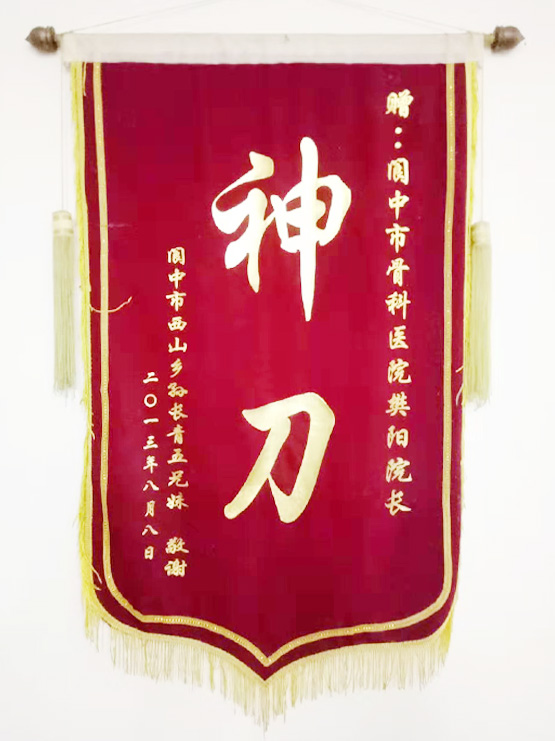 赠：阆中市骨科医院樊阳院长
神刀
阆中市西山乡孙长青五兄妹 敬谢
二〇一三年八月八日